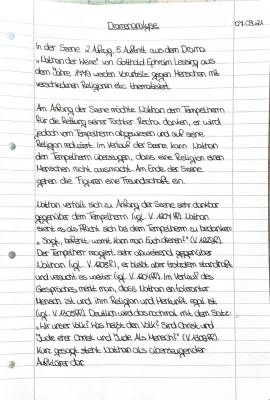 Dramenanalyse 07.09.21
In der Szene 2. Aufzug, 5. Auftritt aus dem Drama
„Nathan der Weise" von Gotthold Ephraim Lessing aus
dem Jahre 1779 werden Vorurteile gegen Menschen mit
verschiedenen Religionen etc. thematisiert.
Am Anfang der Szene möchte Nathan dem Tempelherrn
für die Rettung seiner Tochter Recha danken, er wird
jedoch vom Tempelherrn abgewiesen und auf seine
Religion reduziert. Im Verlauf der Szene kann Nathan
den Tempelherrn überzeugen, dass eine Religion einen
Menschen nicht ausmacht. Am Ende der Szene
gehen die Figuren eine Freundschaft ein.
Nathan verhält sich zu Anfang der Szene sehr dankbar
gegenüber dem Tempelherrn (vgl. V. ). Nathan
sieht es als Pflicht sich bei dem Tempelherrn zu bedanken
„Sagt, befehlt: womit kann man Euch dienen?" (V. ).
Der Tempelherr reagiert sehr abweisend gegenüber
Nathan (vgl. V. ), er bleibt aber trotzdem standhaft
und versucht es weiter (vgl. V. ). Im Verlauf des
Gespräches, merkt man, dass Nathan ein toleranter
Mensch ist und ihm Religion und Herkunft egal ist
(vgl. V. ). Deutlich wird das nochmal mit dem Satz:
„Wir unser Volk? Was heißt den Volk? Sind Christ und
Jude eher Christ und Jude Als Mensch?" (V. ).
Kurz gesagt stellt Nathan als überzeugender
Aufklärer dar.